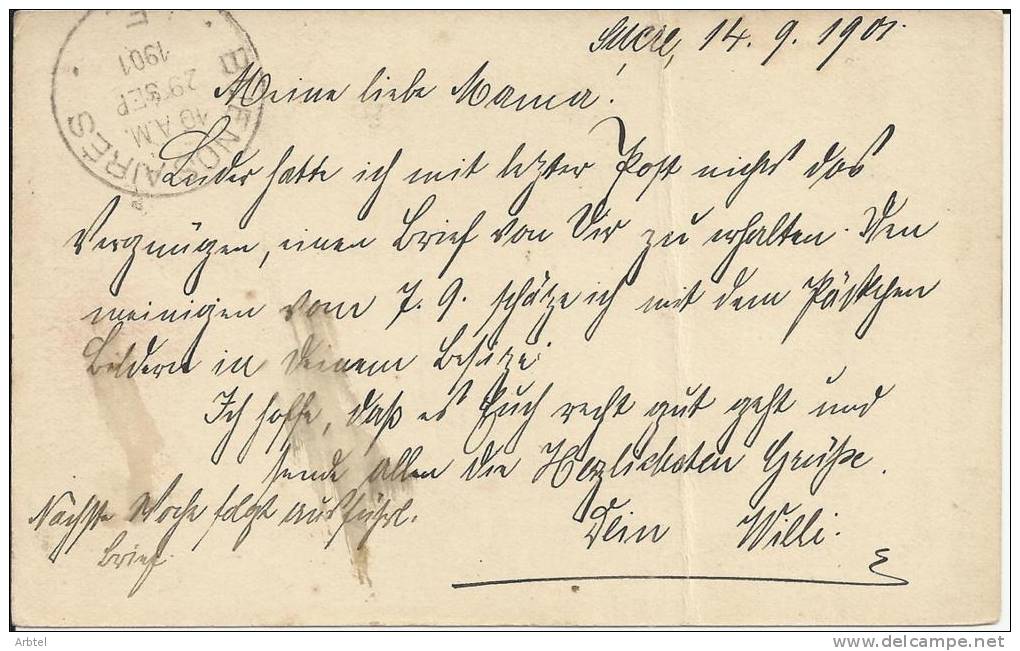 Sucre, 14. 9. 1901.
BUENOS AIRES
10 A.M.
29 SEP
1901
Meine liebe Mama!
Leider hatte ich mit letzter Post nicht das
Vergnügen, einen Brief von Dir zu erhalten. Den
meinigen vom 7. 9. schätze ich mit dem Päckchen
Bildern in Deinem Besitze.
Ich hoffe, daß es Euch recht gut geht und
sende Allen die Herzlichsten Grüße.
Dein Willi.
Nächste Woche folgt ausführl.
Brief.
Arbtel
http://www.delcampe.net